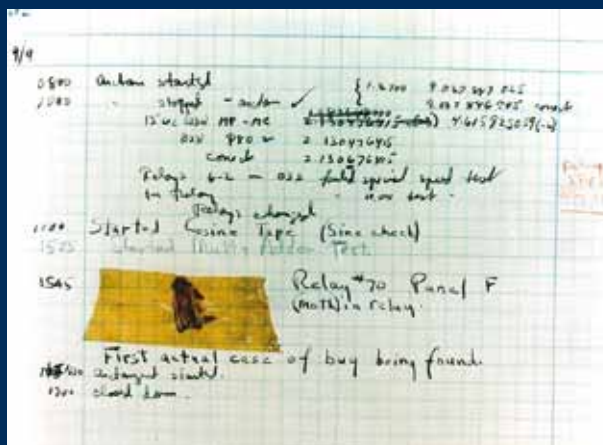 9/9
0800 antan started
1000 " stopped - antan ✓ { 1.2700 9.037 847 025
9.037 846 995 correct
13"uc (032) MP - MC 4.615925059(-2)
033 PRO 2 2.130476415
correct 2.130676415
Relays 6-2 in 033 failed special speed test
in relay " test
Relays changed
1100 Started Cosine Tape (Sine check)
1525 Started Multi Adder Test
1545 Relay #70 Panel F
(moth) in relay.
First actual case of bug being found.
antangent started.
1700 closed down.